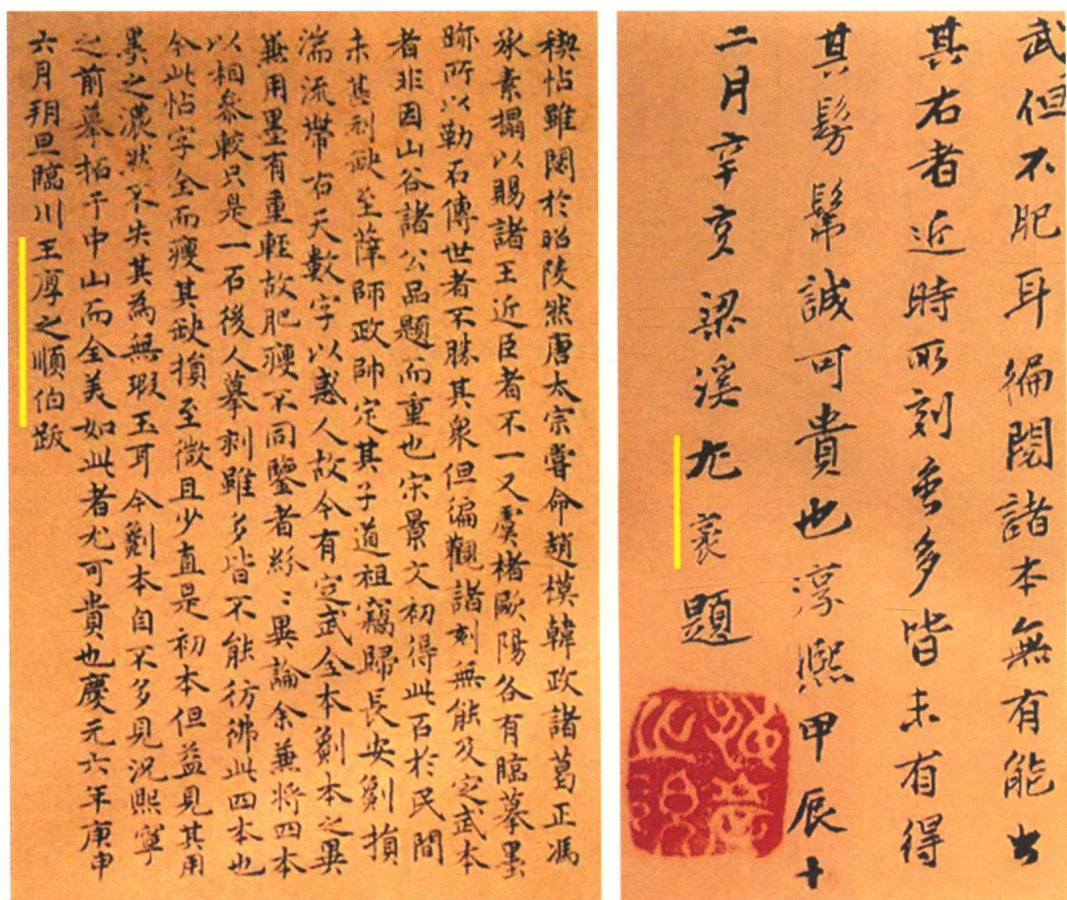 武但不肥耳徧閱諸本無有能出
其右者近時所刻多皆未有得
其髣髴誠可貴也淳熙甲辰十
二月辛亥梁溪尤袤題
稧帖雖閟於昭陵然唐太宗嘗命趙模韓政諸葛正馮
承素搨以賜諸王近臣者不一又虞楮歐陽各有臨摹墨
跡所以勒石傳世者不勝其衆但徧觀諸刻無能及定武本
者非因山谷諸公品題而重也宋景文初得此石於民間
未甚刓缺至薛師政帥定其子道祖竊歸長安劖損
湍流帶右天數字以惑人故今有定武全本劖本之異
無用墨有重輕故肥瘦不同鑒者紛〻異論余兼將四本
以相參較只是一石後人摹刻雖多皆不能彷彿此四本也
今此帖字全而瘦其缺損至微且少直是初本但益見其用
墨之濃然不失其為無瑕玉耳今劖本自不多見況熙寧
之前摹拓于中山而全美如此者尤可貴也慶元六年庚申
六月朔旦臨川王厚之順伯跋